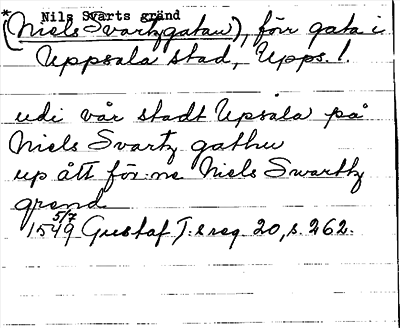 * Nils Svarts gränd
(Niels Svartzgatan), förr gata i
Uppsala stad, Upps. l.
udi vår stadt Upsala på
Niels Svartz gathu
up ått för:ne Niels Swarttz
grend
1549 5/7 Gustaf I:s reg. 20, s. 262.